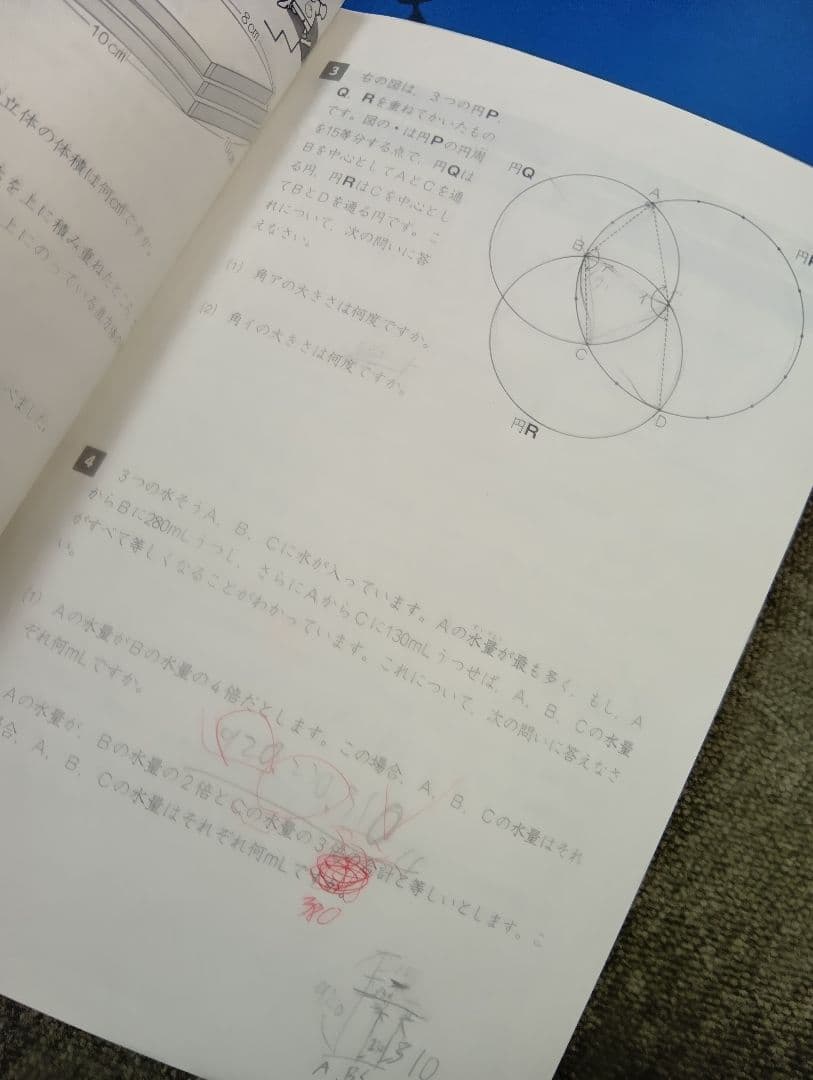 10cm
8cm
立体の体積は何cm³ですか。
を上に積み重ねたところ、
上にのっている直方体の
べました。
3 右の図は、3つの円P、
Q、Rを重ねてかいたもの
です。図の・は円Pの円周
を15等分する点で、円Qは
Bを中心としてAとCを通
る円、円RはCを中心とし
てBとDを通る円です。こ
れについて、次の問いに答
えなさい。
(1) 角アの大きさは何度ですか。
(2) 角イの大きさは何度ですか。
円Q
A
B
ア
イ
C
D
円R
4 3つの水そうA、B、Cに水が入っています。Aの水量が最も多く、もし、A
からBに280mLうつし、さらにAからCに130mLうつせば、A、B、Cの水量
がすべて等しくなることがわかっています。これについて、次の問いに答えなさ
い。
(1) Aの水量がBの水量の4倍だとします。この場合、A、B、Cの水量はそれ
ぞれ何mLですか。
Aの水量が、Bの水量の2倍とCの水量の3倍の合計と等しいとします。こ
合、A、B、Cの水量はそれぞれ何mLですか。
380
310